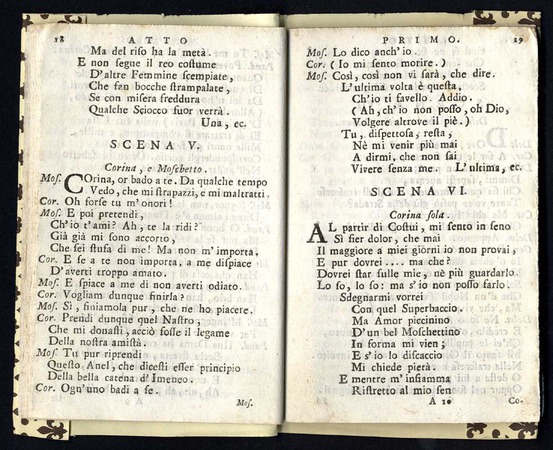 18 ATTO
Ma del riso ha la metà.
E non segue il reo costume
D'altre Femmine scempiate,
Che fan bocche strampalate,
Se con misera freddura
Qualche Sciocco fuor verrà.
Una, ec.
SCENA V.
Corina, e Moschetto.
Mos. COrina, or bado a te. Da qualche tempo
Vedo, che mi strapazzi, e mi maltratti.
Cor. Oh forse tu m'onori!
Mos. E poi pretendi,
Ch'io t'ami? Ah, te la ridi?
Già già mi sono accorto,
Che sei stufa di me! Ma non m'importa.
Cor. E se a te non importa, a me dispiace
D'averti troppo amato.
Mos. E spiace a me di non averti odiato.
Cor. Vogliam dunque finirla?
Mos. Sì, finiamola pur, che ne ho piacere.
Cor. Prendi dunque quel Nastro;
Che mi donasti, acciò fosse il legame
Della nostra amistà.
Mos. Tu pur riprendi
Questo Anel, che dicesti esser principio
Della bella catena d'Imeneo.
Cor. Ogn'uno badi a se.
Mos.
PRIMO. 19
Mos. Lo dico anch'io.
Cor. (Io mi sento morire.)
Mos. Così, così non vi sarà, che dire.
L'ultima volta è questa,
Ch'io ti favello. Addio.
(Ah, ch'io non posso, oh Dio,
Volgere altrove il piè.)
Tu, dispettosa, resta,
Nè mi venir più mai
A dirmi, che non sai
Vivere senza me. L'ultima, ec.
SCENA VI.
Corina sola.
AL partir di Costui, mi sento in seno
Sì fier dolor, che mai
Il maggiore a miei giorni io non provai,
E pur dovrei .... ma che?
Dovrei star sulle mie, nè più guardarlo.
Lo so, lo so: ma s'io non posso farlo.
Sdegnarmi vorrei
Con quel Superbaccio.
Ma Amor piccinino
D'un bel Moschettino
In forma mi vien;
E s'io lo discaccio
Mi chiede pietà.
E mentre m'infiamma
Ristretto al mio sen
A 10 Co-